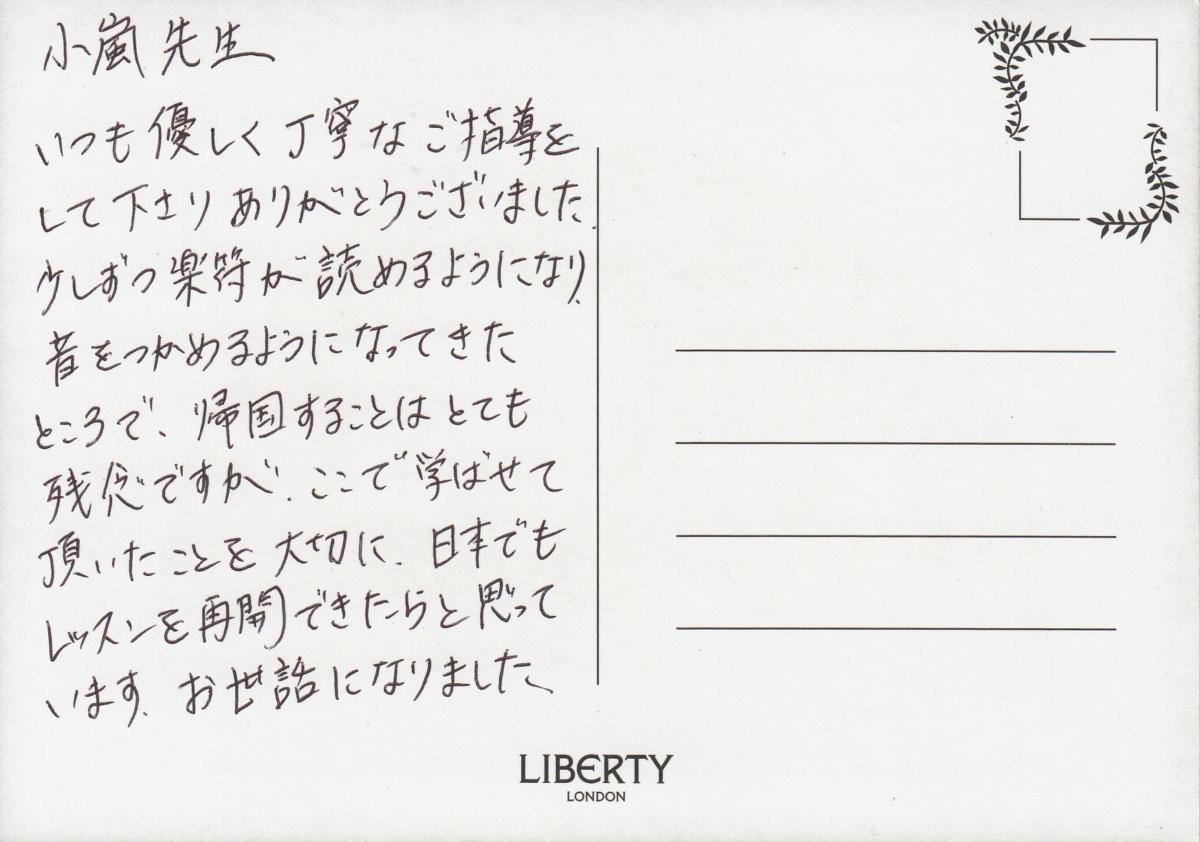 小嵐先生
いつも優しく丁寧なご指導を
して下さりありがとうございました.
少しずつ楽符が読めるようになり、
音をつかめるようになってきた
ところで、帰国することはとても
残念ですが、ここで学ばせて
頂いたことを大切に、日本でも
レッスンを再開できたらと思って
います。お世話になりました、
LIBERTY
LONDON